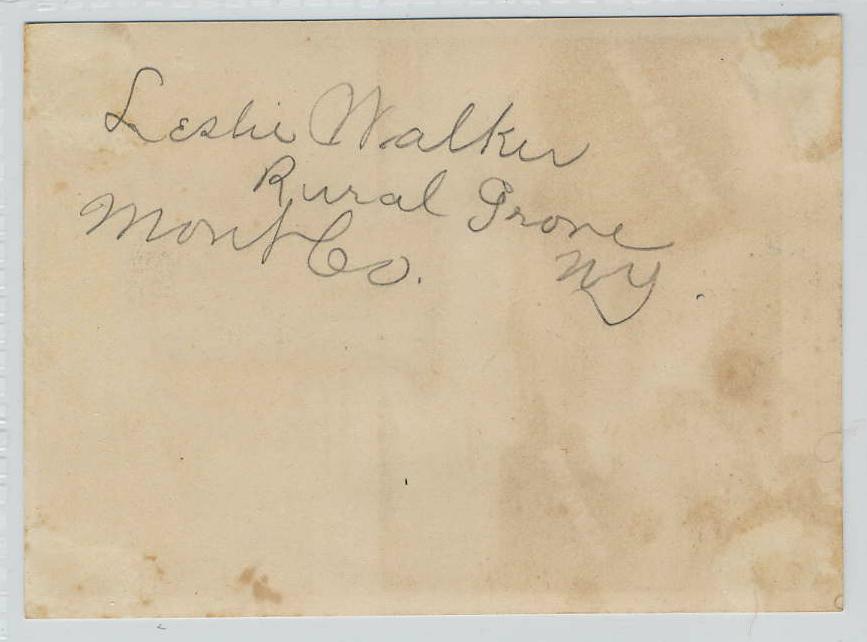 Leslie Walker
Rural Grove
Mont Co. NY.